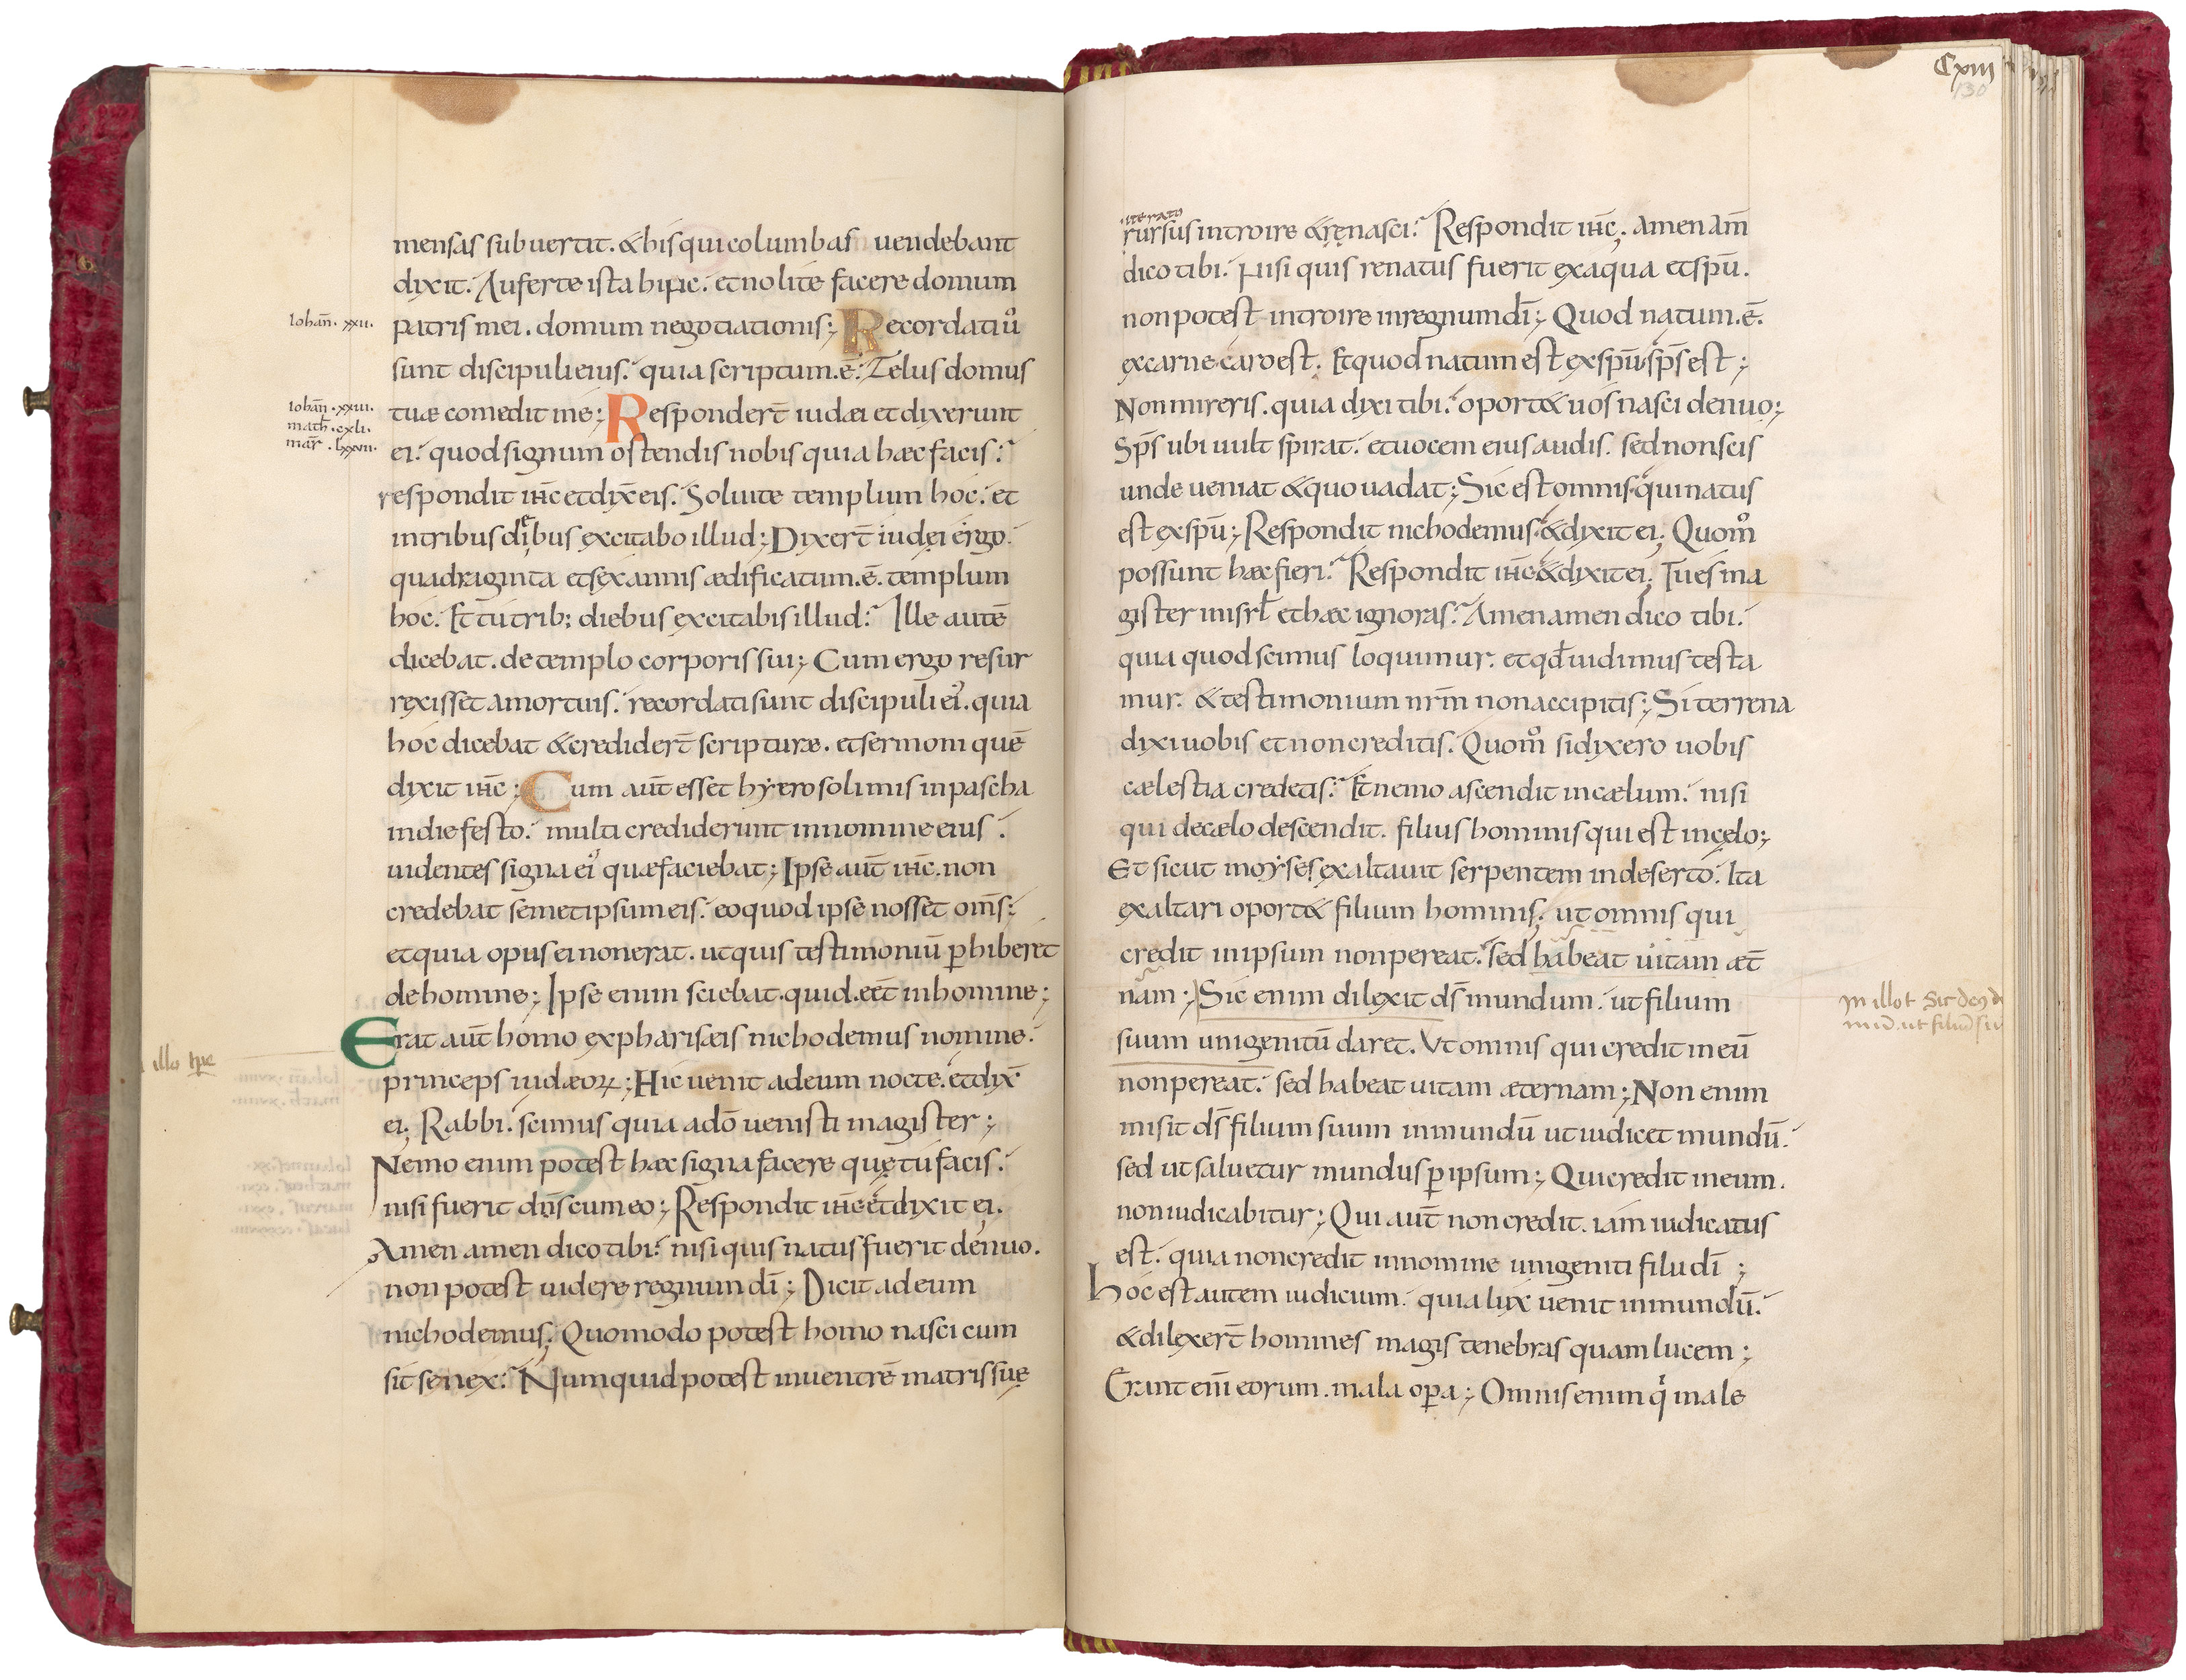 mensas subuertit. & his qui columbas uendebant
dixit. Auferte ista hinc. et nolite facere domum
Iohan̄. xxii.
patris mei. domum negotiationis; Recordati ů
sunt discipuli eius. quia scriptum .ē. Zelus domus
Iohan̄. xxiii.
math̄. cxli.
mar̄. lxxvii.
tuæ comedit me; Responder̄t iudæi et dixerunt
ei. quod signum ostendis nobis quia hæc facis.
respondit ih̄c et dix̄ eis. Soluite templum hoc. et
in tribus diebus excitabo illud; Dixer̄t iudęi ergo.
quadraginta et sex annis ædificatum .ē. templum
hoc. Et tu trib; diebus excitabis illud. Ille autē
dicebat. de templo corporis sui; Cum ergo resur
rexisset a mortuis. recordati sunt discipuli ei'. quia
hoc dicebat & credider̄t scripturæ. et sermoni quē
dixit ih̄c; Cum aut̄ esset hyerosolimis in pascha
in die festo. multi crediderunt in nomine eius.
uidentes signa ei' quæ faciebat; Ipse aut̄ ih̄c. non
credebat semetipsum eis. eo quod ipse nosset om̄s;
et quia opus ei non erat. ut quis testimoniū ꝑhiberet
de homine; Ipse enim sciebat. quid .eēt in homine;
Erat aut̄ homo ex pharisæis nichodemus nomine.
illo tp̄e
princeps iudæoꝝ; Hic uenit ad eum nocte. et dix̄
ei; Rabbi. scimus quia a dō uenisti magister;
Nemo enim potest hæc signa facere quę tu facis.
nisi fuerit dn̄s cum eo; Respondit ih̄c et dixit ei.
Amen amen dico tibi. nisi quis natus fuerit denuo.
non potest uidere regnum dī; Dicit ad eum
nichodemus; Quomodo potest homo nasci cum
sit senex. Numquid potest in uentrē matris suę
Cxiii
130
iterato
rursus introire & renasci. Respondit ih̄c; Amen am̄
dico tibi. Nisi quis renatus fuerit ex aqua et spū.
non potest introire in regnum dī; Quod natum .ē.
ex carne caro est. Et quod natum est ex spū sp̄s est;
Non mireris. quia dixi tibi. oport& uos nasci denuo;
Sp̄s ubi uult spirat. et uocem eius audis. sed non scis
unde ueniat & quo uadat; Sic est omnis qui natus
est ex spū; Respondit nichodemus & dixit ei; Quom̊
possunt hæc fieri. Respondit ih̄c & dixit ei; Tu es ma
gister in isrł et hæc ignoras. Amen amen dico tibi.
quia quod scimus loquimur. et qđ uidimus testa
mur. & testimonium nr̄m non accipitis; Si terrena
dixi uobis et non creditis. Quom̊ si dixero uobis
cælestia credetis. Et nemo ascendit in cælum. nisi
qui de cælo descendit. filius hominis qui est in cęlo;
Et sicut moyses exaltauit serpentem in deserto. Ita
exaltari oport& filium hominis; ut omnis qui
credit in ipsum non pereat. sed habeat uitam æt̄
nam; Sic enim dilexit ds̄ mundum. ut filium
In illo t Sic deꝯ d
mud. ut filiū su
suum unigenitū daret. Vt omnis qui credit in eū
non pereat. sed habeat uitam æternam; Non enim
misit ds̄ filium suum in mundū ut iudicet mundū.
sed ut saluetur mundus ꝑ ipsum; Qui credit in eum.
non iudicabitur; Qui aut̄ non credit. iam iudicatus
est. quia non credit in nomine unigeniti filii dī;
Hoc est autem iudicium. quia lux uenit in mundū.
& dilexer̄t homines magis tenebras quam lucem;
Erant eni̅ eorum. mala oꝑa; Omnis enim qi male